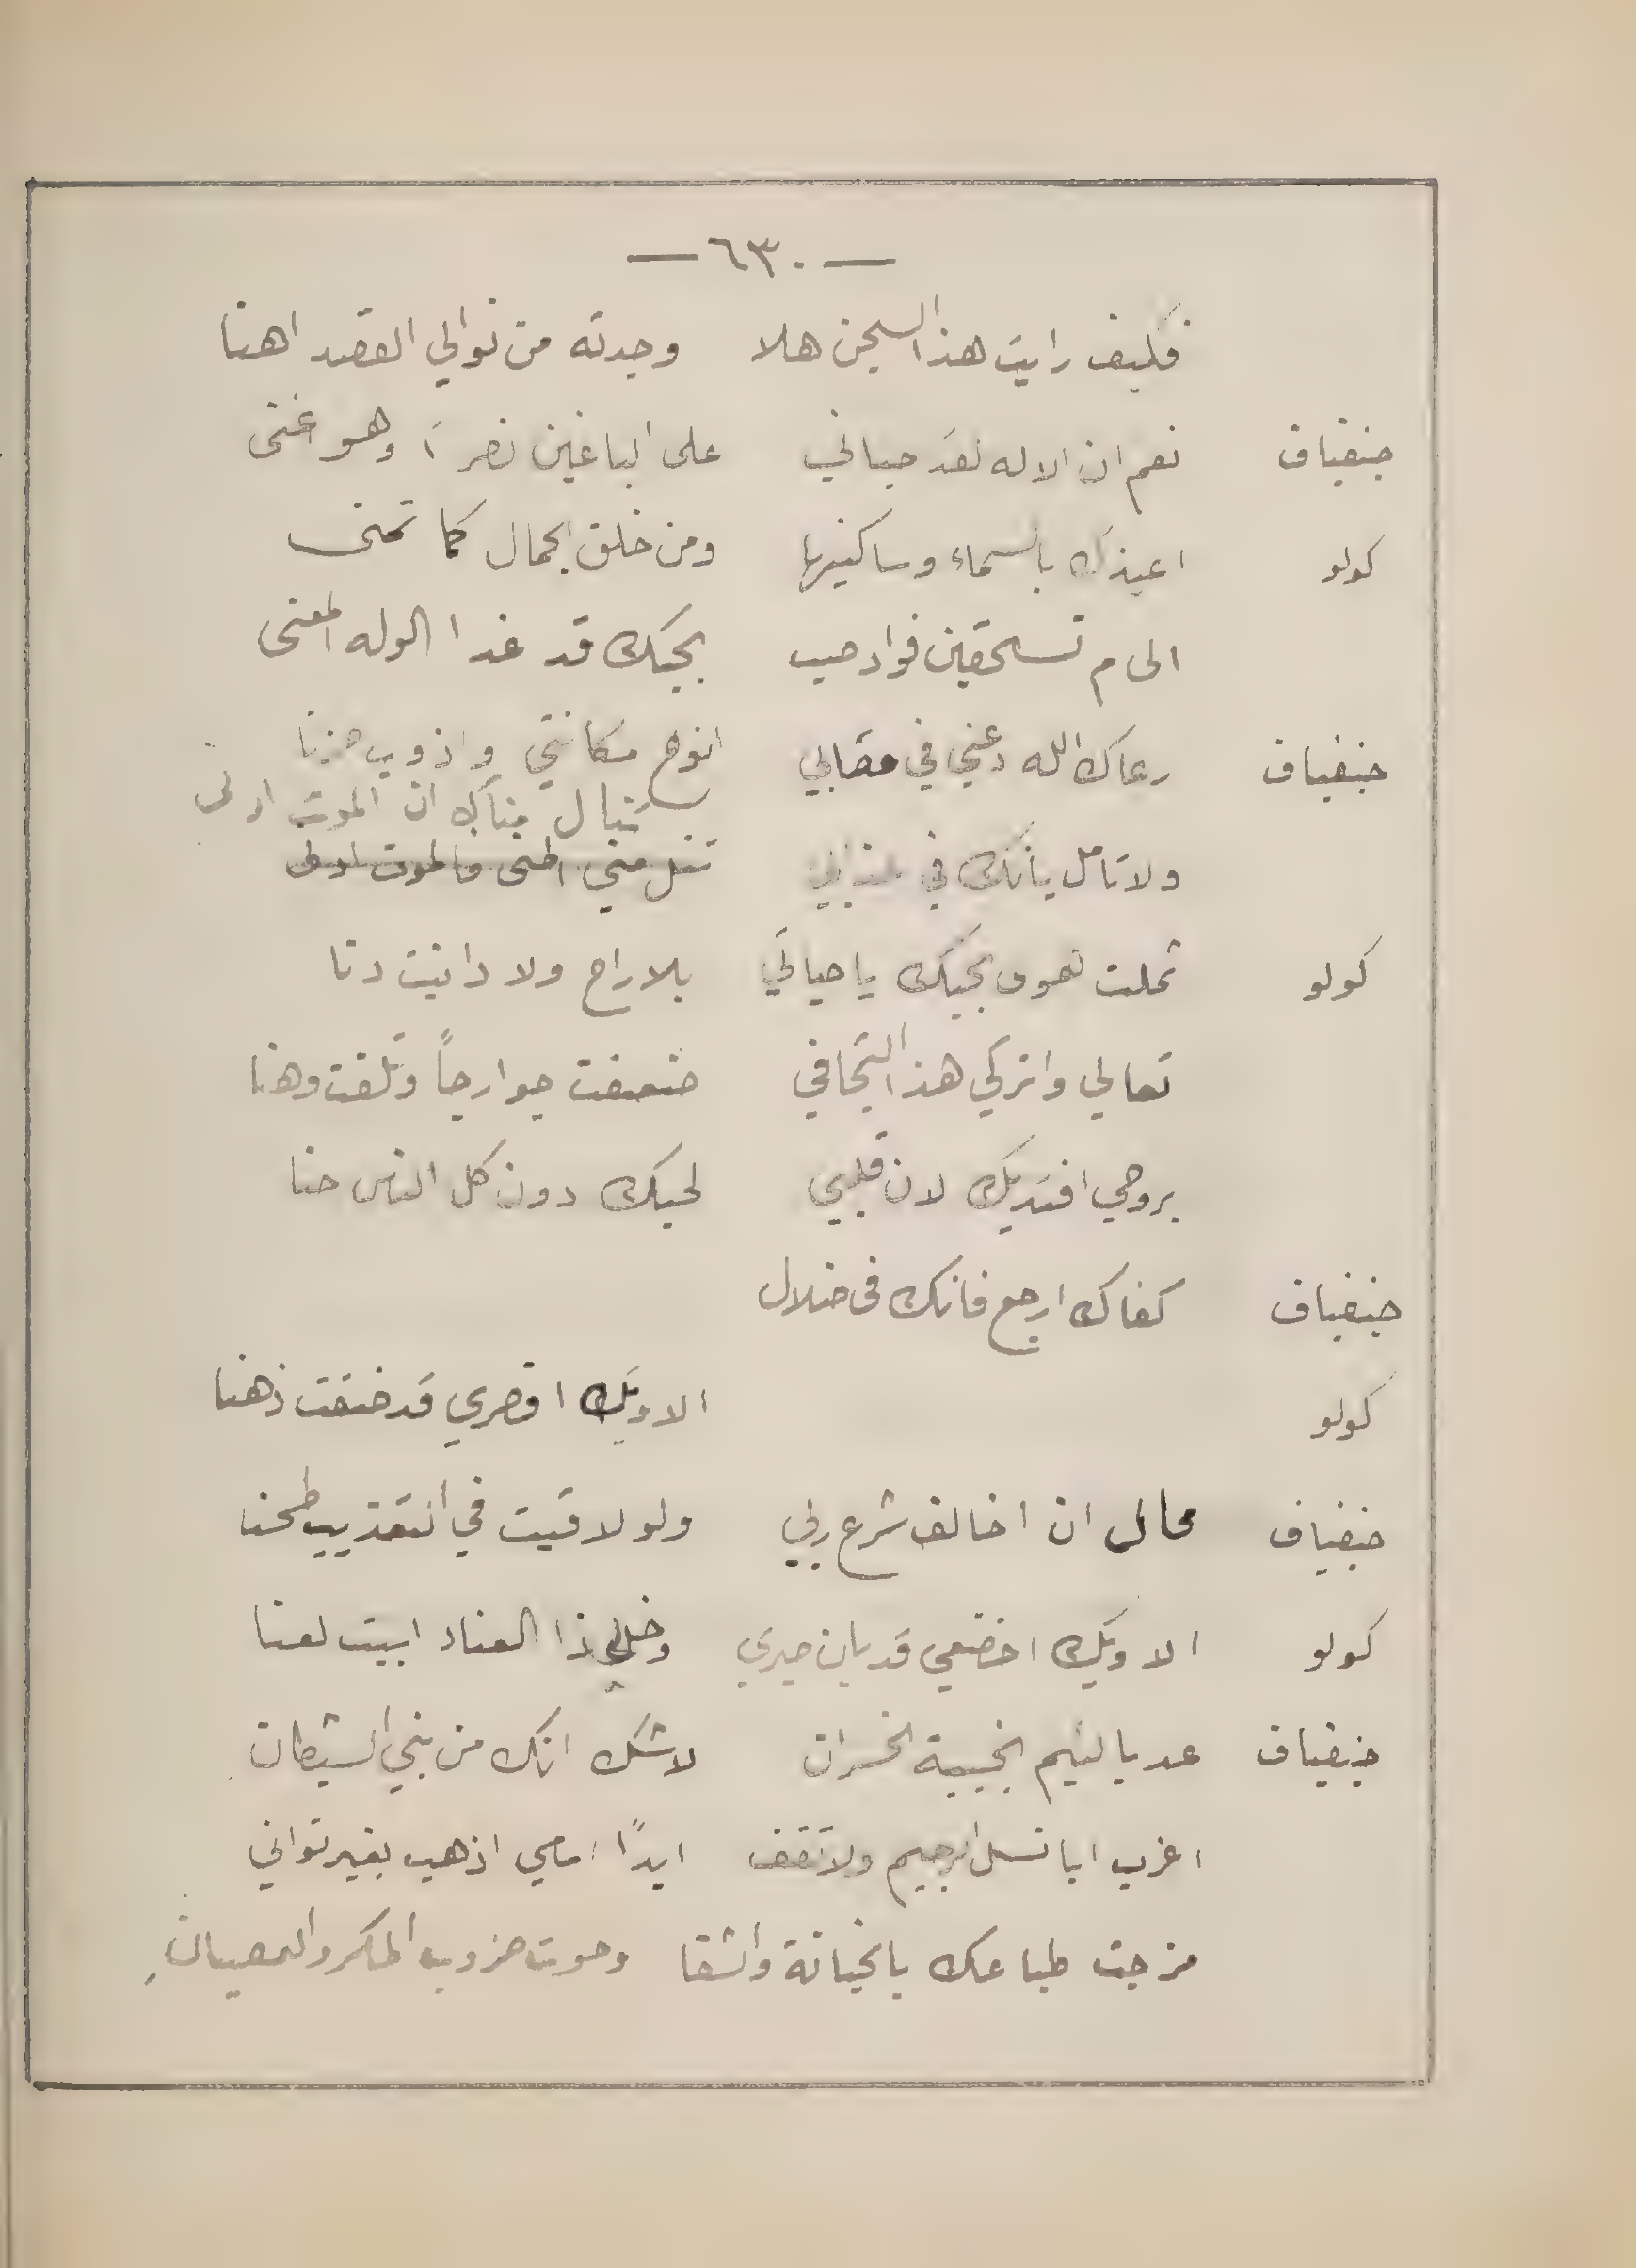 — ٦٣٠ —
فكيف رايت هذا السجن هلا وجدته من نوالي القصد اهنا
جنفياف نعم ان الاله لقد حباني على الباغين نصراً وهو اغنى
كولو اعيذك بالسماء وساكنيها ومن خلق الجمال كما تمنى
الى م تسحقين فواد صب بحبك قد غدا الوله المعنى
جنفياف رعاك الله دعني في مصابي انوح مكانتي واذوب حزنا
ان الموت اولى
ولا تامل بانك في عذابي تنل مني المنى فالموت اولى
كولو ثملت لهوى بحبك يا حياتي بلا راح ولا دانيت دنا
تعالي واتركي هذا التجافي ضعفت جوارحاً وتلفت وهنا
بروحي افتديك لان قلبي لحبك دون كل الناس حنا
جنفياف كفاك ارجع فانك في ضلال
كولو الا ويك اقصري قد ضقت ذهنا
جنفياف محال ان اخالف شرع ربي ولو لاقيت في التعذيب طحنا
كولو الا ويك اخضعي قد بان حيري وخلي ذا العناد ابيت لعنا
جنفياف عد يا لئيم بخيبة الخسران لا شك انك من بني الشيطان
اغرب ايا نسل الرجيم ولا تقف ابدًا امامي اذهب بغير تواني
مزجت طباعك بالخيانة والشقا وحوت ضروب المكر والعصيان